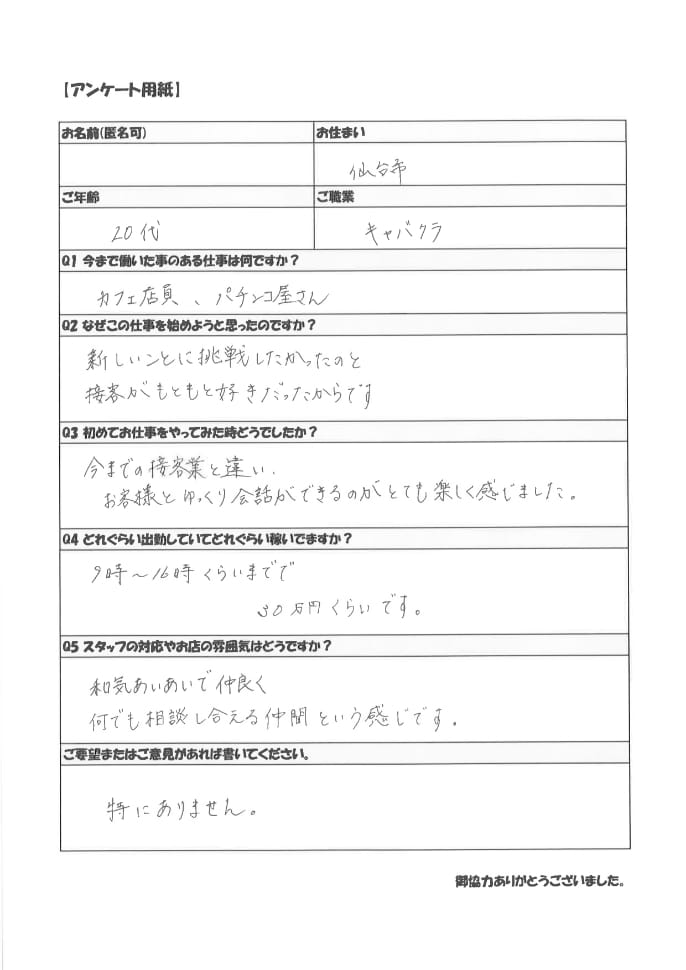 【アンケート用紙】
お名前(匿名可) お住まい
仙台市
ご年齢 ご職業
20代 キャバクラ
Q1 今まで働いた事のある仕事は何ですか？
カフェ店員、パチンコ屋さん
Q2 なぜこの仕事を始めようと思ったのですか？
新しいことに挑戦したかったのと
接客がもともと好きだったからです
Q3 初めてお仕事をやってみた時どうでしたか？
今までの接客業と違い、
お客様とゆっくり会話ができるのがとても楽しく感じました。
Q4 どれぐらい出勤していてどれぐらい稼いでますか？
9時〜16時くらいまでで
30万円くらいです。
Q5 スタッフの対応やお店の雰囲気はどうですか？
和気あいあいで仲良く
何でも相談し合える仲間という感じです。
ご要望またはご意見があれば書いてください。
特にありません。
御協力ありがとうございました。